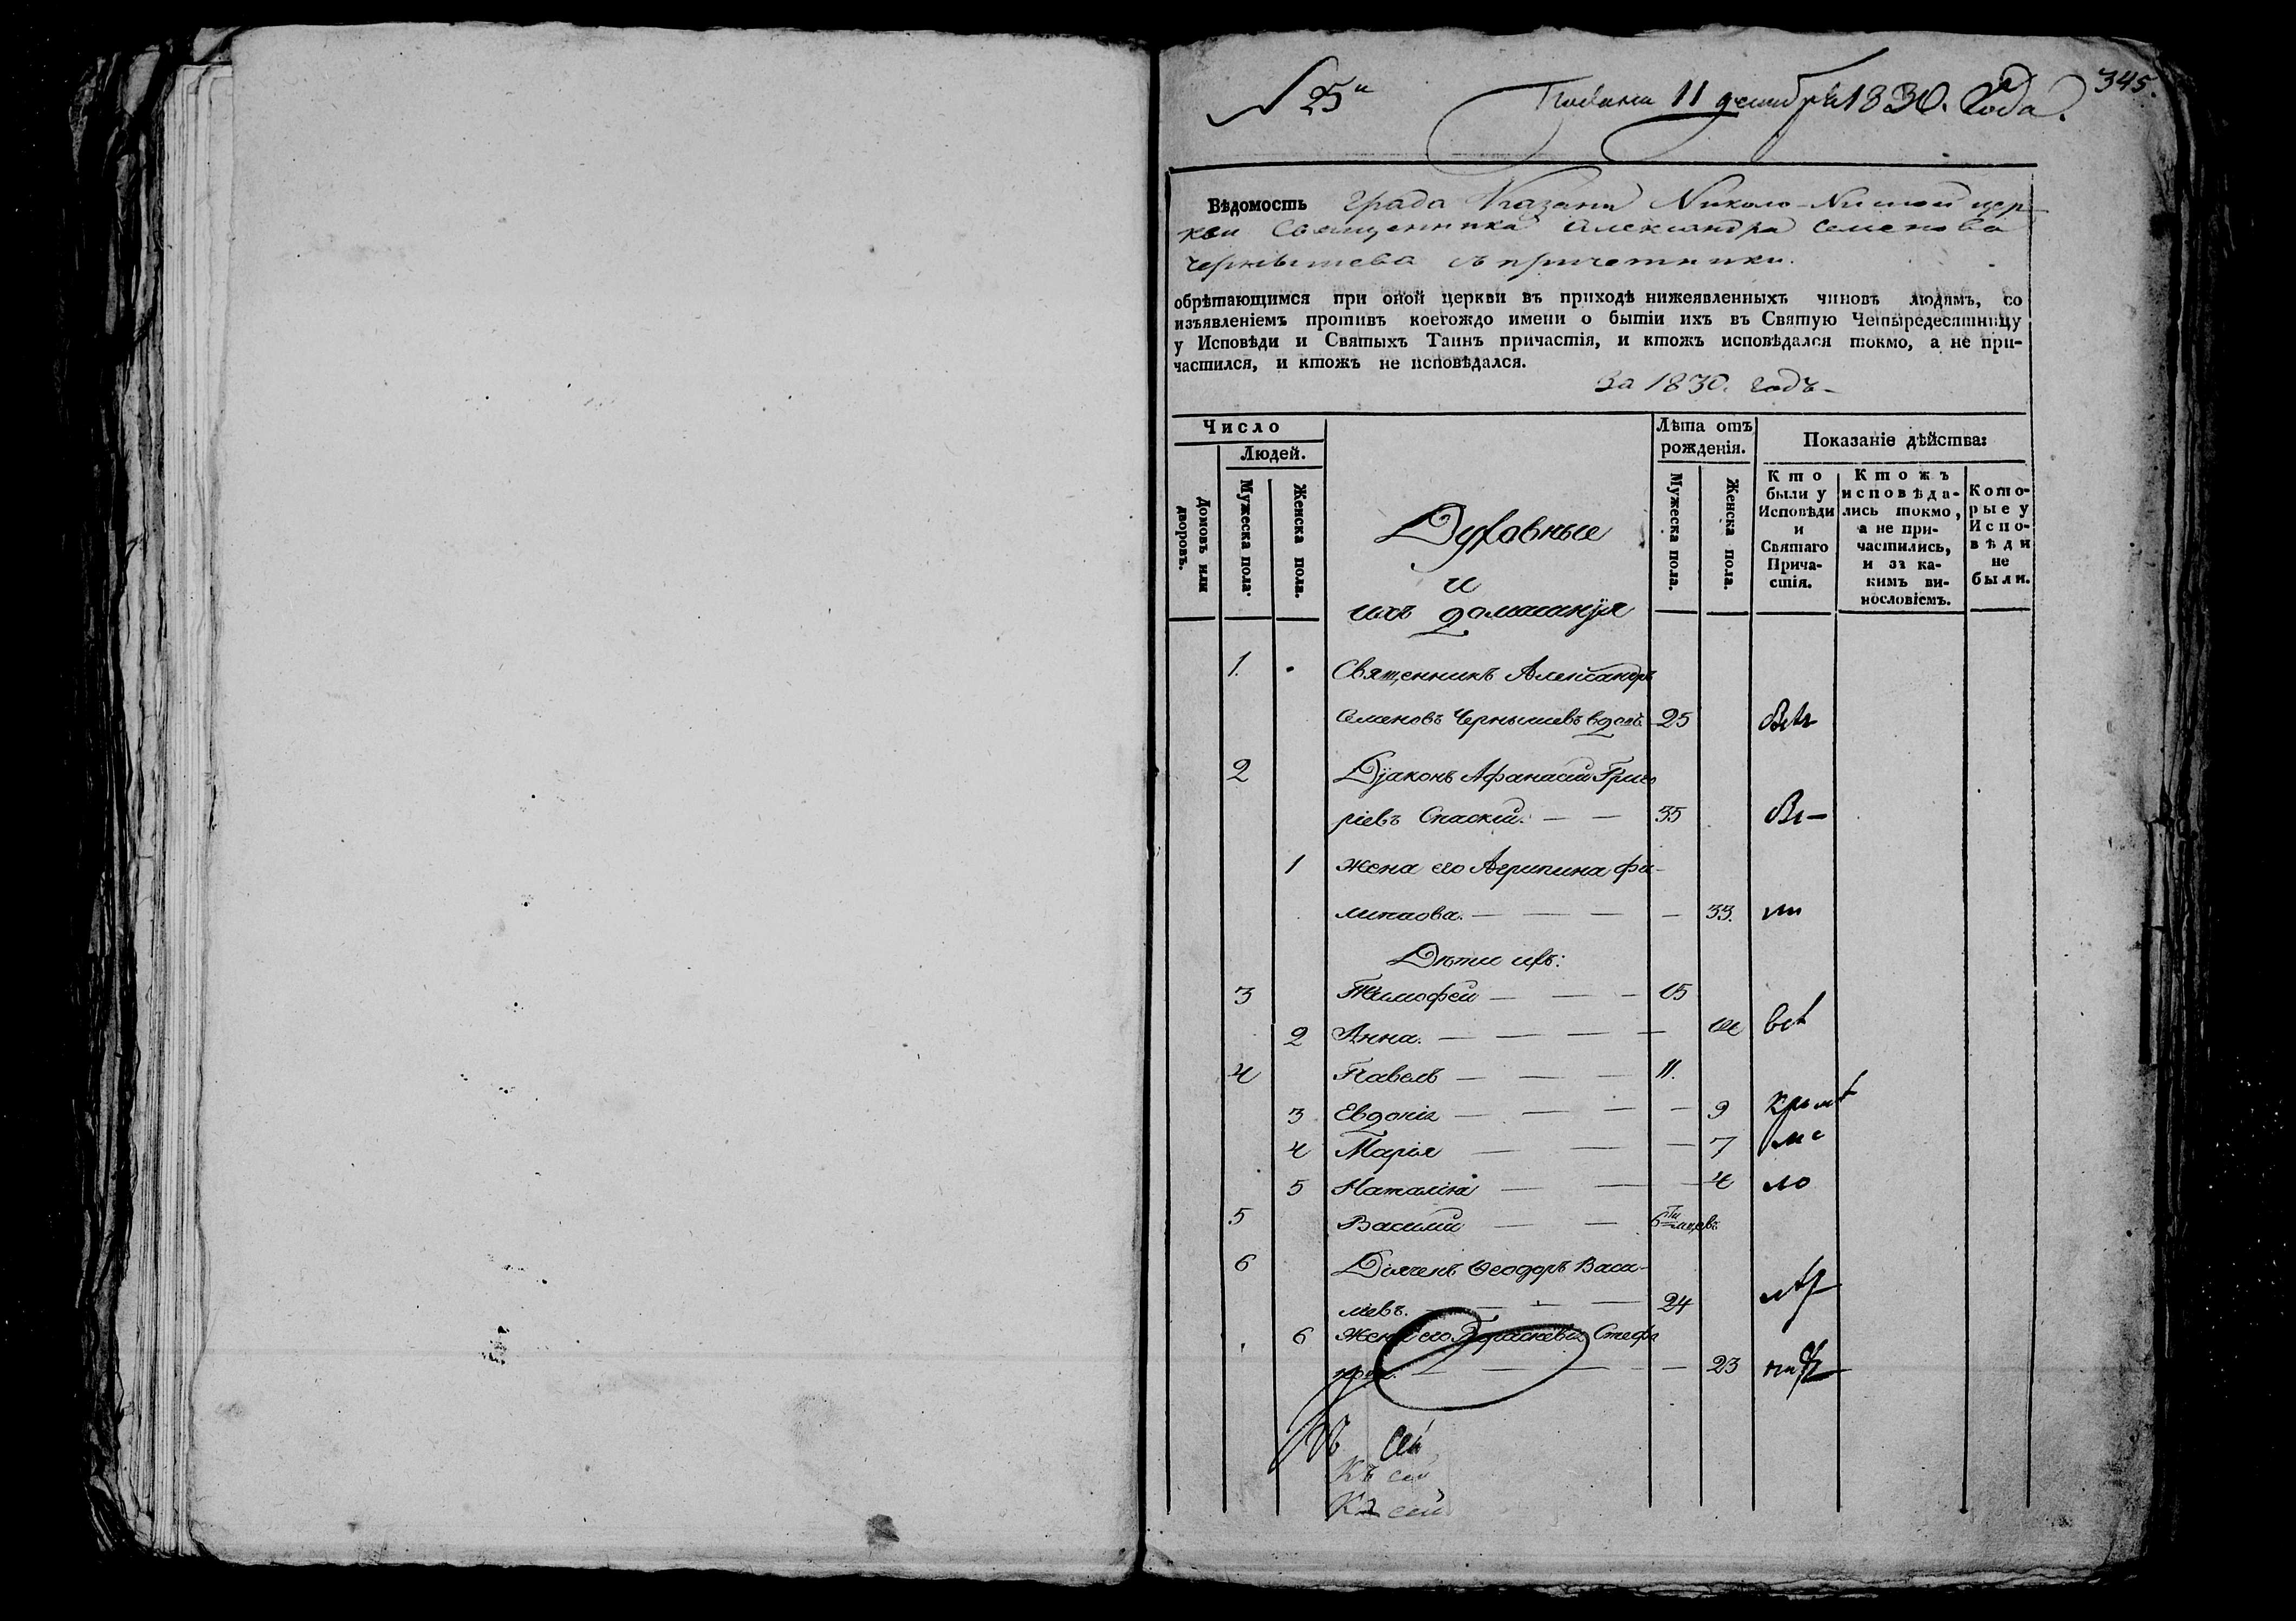 № 25й
Подана 11 декабря 1830. Года.
345.
Вѣдомость Града Казани Николо-Нисской цер-
кви Священника Александра Семенова
Чернышева съ причетники.
обрѣтающимся при оной церкви въ приходѣ нижеявленныхъ чиновъ людямъ, со
изъявленіемъ противъ коегождо имени о бытіи ихъ въ Святую Четыредесятницу
у Исповѣди и Святыхъ Таинъ причастія, и ктожъ исповѣдался токмо, а не при-
частился, и ктожъ не исповѣдался.
За 1830. годъ
Число
Людей.
Домовъ или дворовъ.
Мужеска пола.
Женска пола.
Духовные
и
ихъ домашнія
Лѣта отъ
рожденія.
Мужеска пола.
Женска пола.
Показаніе дѣйства:
Кто
были у
Исповѣди
и
Святаго
Прича-
стія.
Ктожъ
исповѣда-
лись токмо,
а не при-
частились,
и за ка-
кимъ ви-
нословіемъ.
Кото-
рые у
Испо-
вѣди
не
были.
1. Священникъ Александръ
Семеновъ Чернышевъ вдовъ 25
2 Діаконъ Афанасій Григо
ріевъ Спаскій. — — 35
1 Жена его Агрипина Фи-
липпова. — — — — 33.
Дѣти ихъ:
3 Тимофей — — — 15
2 Анна. — — — —
4 Павелъ — — — 11.
3 Евдокія — — — — 9
4 Марія — — — 7
5 Наталія — — — 4
5 Василій — — 6ти мцовъ
6 Дьячекъ Ѳеодоръ Васи-
льевъ. — — — 24
6 Жена его Параскева Стефа
нова. — — — — 23
Къ сей
Къ сей
Къ сей